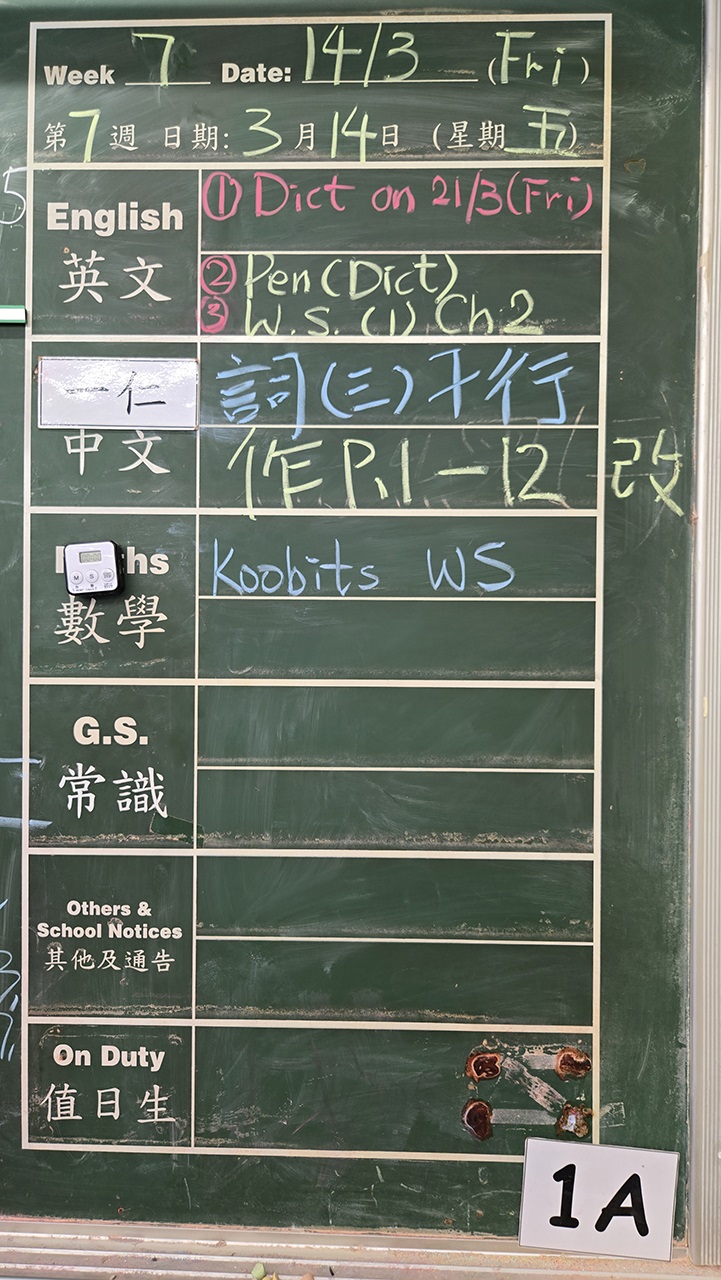 Week 7 Date: 14/3 (Fri)
第7週 日期: 3月14日 (星期五)
English
英文
① Dict on 21/3(Fri)
② Pen (Dict)
③ W.S. (1) Ch.2
一仁
中文
詞(三)才行
作 P.1-12 改
hs
數學
Koobits WS
G.S.
常識
Others &
School Notices
其他及通告
On Duty
值日生
M S
1A